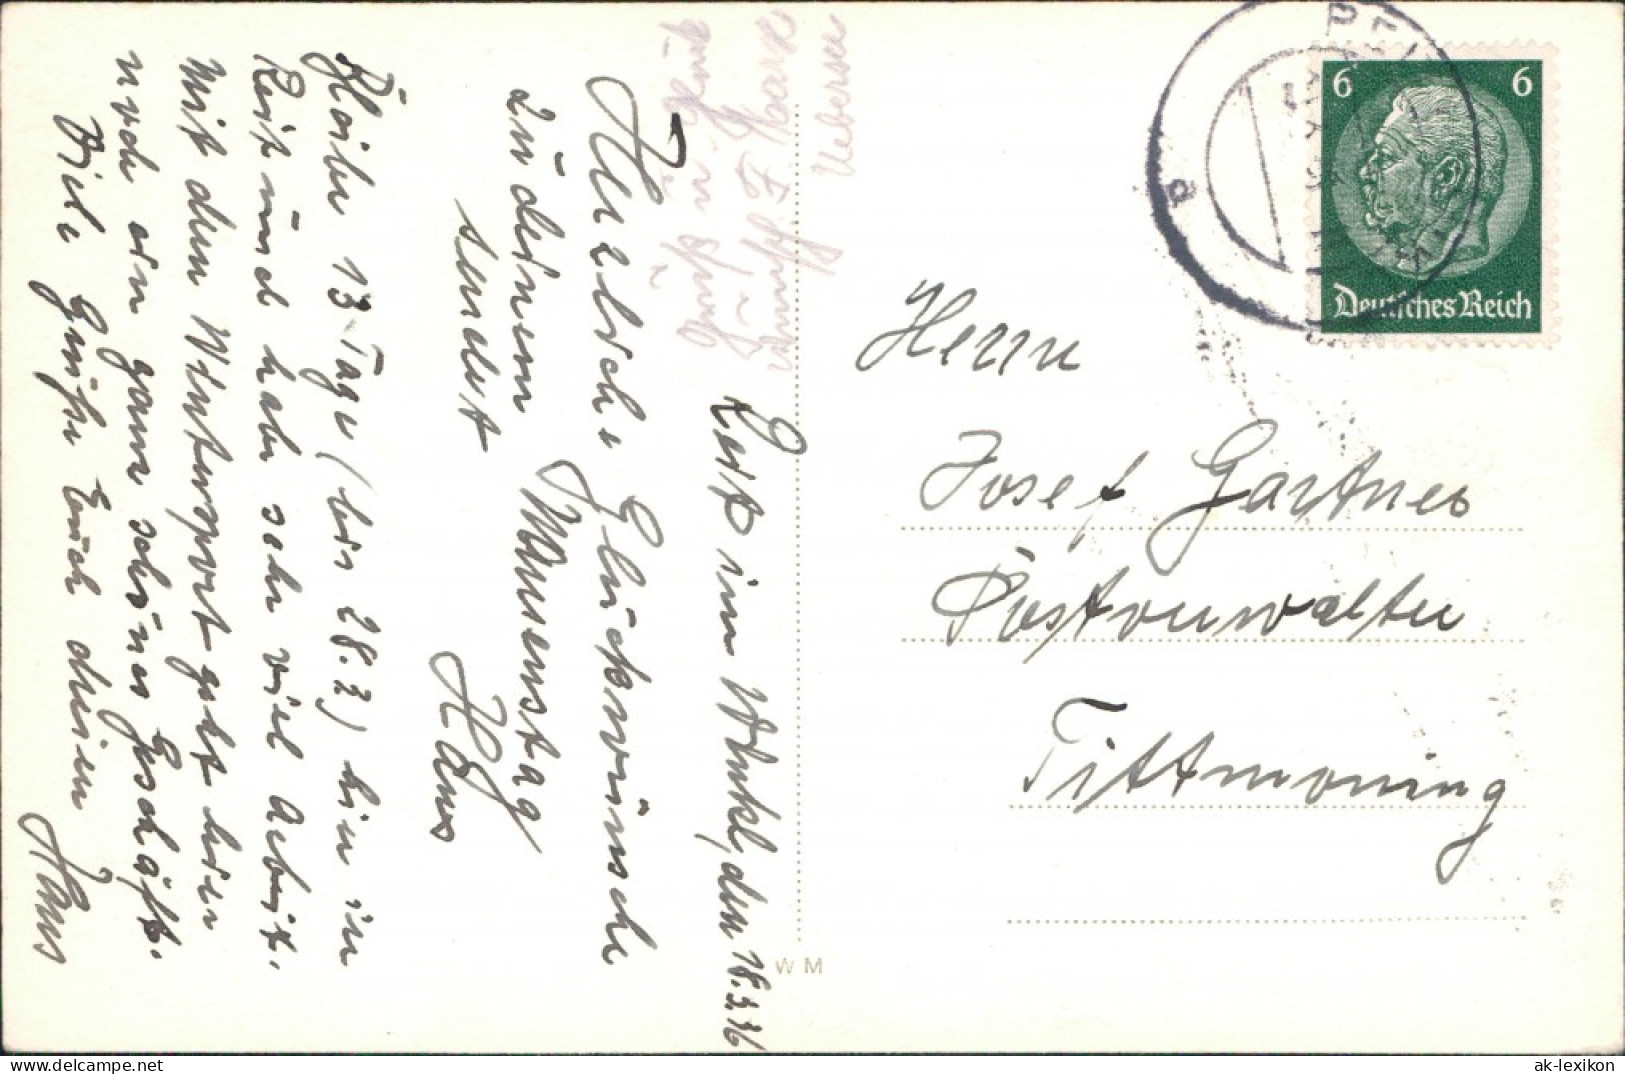 Reit im Winkel, den 18.3.36
Herzliche Glückwünsche
zu deinem Namenstag
sendet
Hans
Bleibe 13 Tage (bis 28.3) hier in
Reit und habe sehr viel Arbeit.
Mit dem Wintersport geht hier
noch ein ganz schönes Geschäft.
Viele Grüße Euch allen
Hans
Mark
Uebersee
Herrn
Josef Gartner
Postverwalter
Tittmoning
6 6
Deutsches Reich
a
W M
ak-lexikon